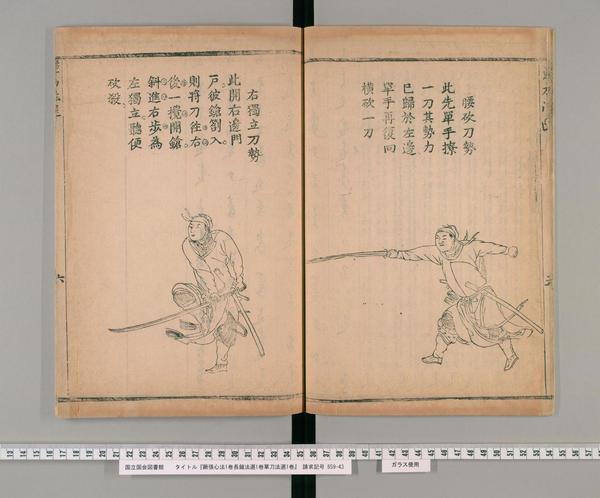 腰砍刀勢
此先單手撩
一刀其勢力
已歸於左邊
單手再復回
橫砍一刀
右獨立刀勢
此開右邊門
戶彼鎗劄入
則將刀往右
後一攪開鎗
斜進右步為
左獨立聽便
砍殺
六
13 14 15 16 17 18 19 20 21 22 23 24 25 26 27 28 29 30 31 32 33 34 35 36 37 38 39 40 41 42 43 44 45 46 47 48 49 50 51 52 53 54 55 56 57 58
国立国会図書館 タイトル『蹶張心法1巻長鎗法選1巻單刀法選1巻』 請求記号 859-43
ガラス使用